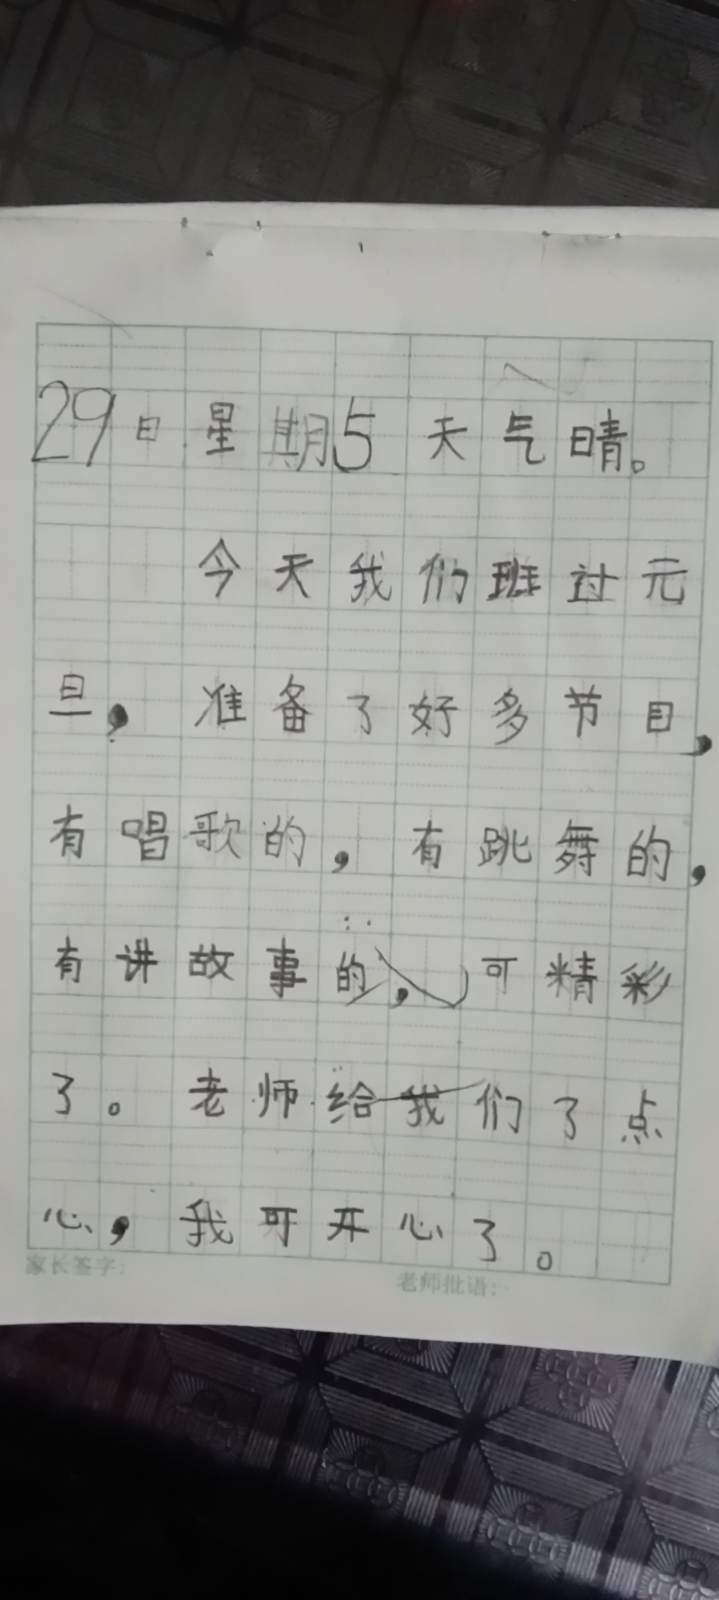 29日星期5天气晴。
今天我们班过元
旦,准备了好多节目,
有唱歌的,有跳舞的,
有讲故事的,可精彩
了。老师给我们了点
心,我可开心了。
家长签字: 老师批语: